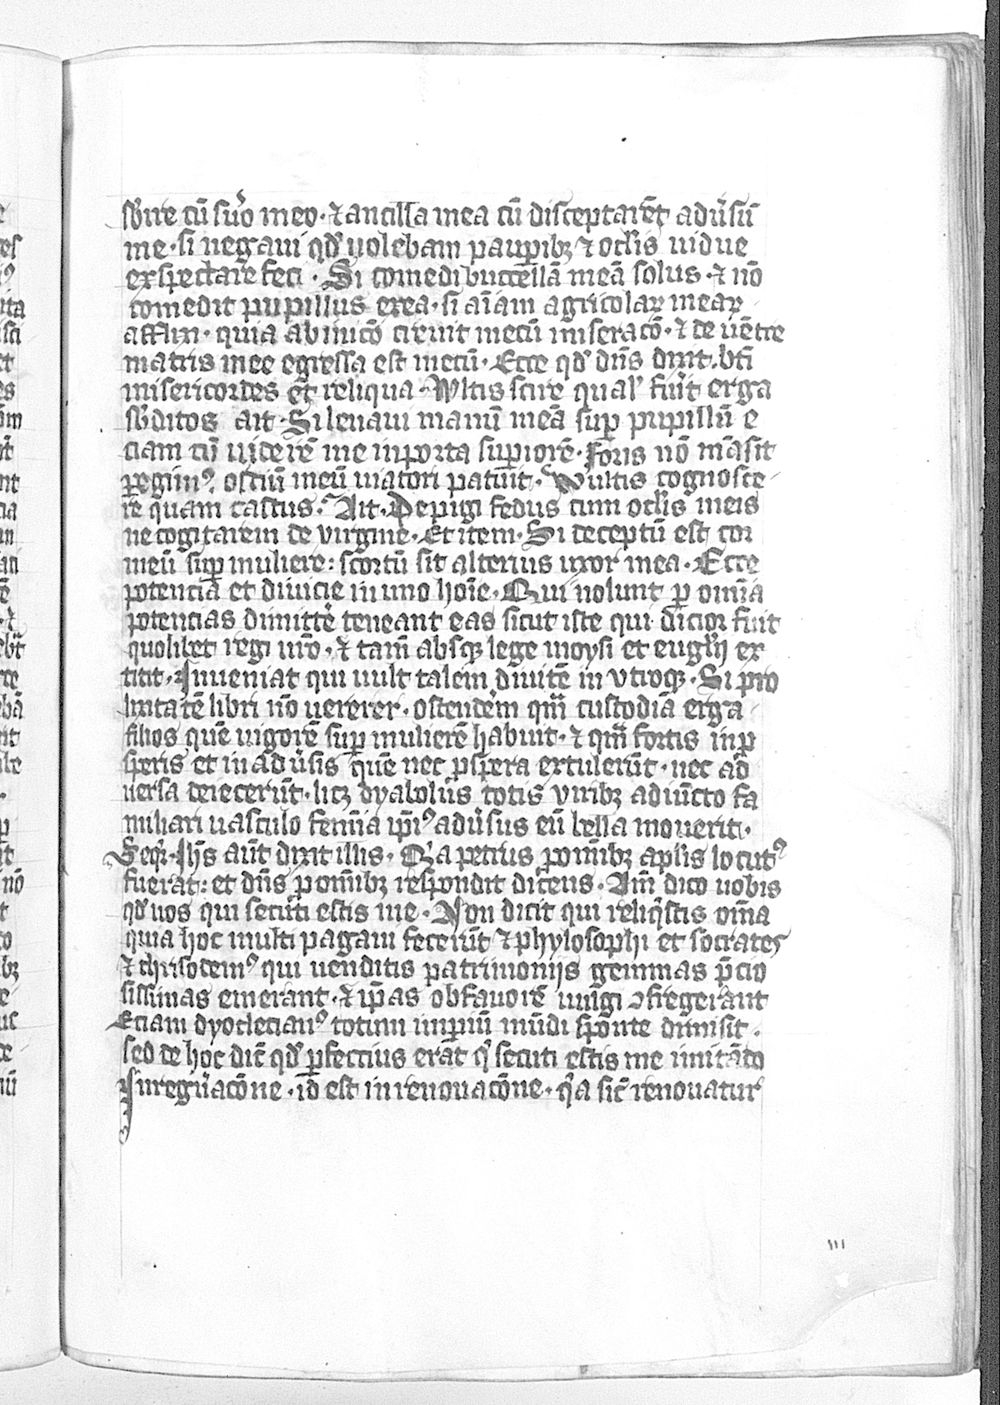 sbire cū suͦo meo · ⁊ ancilla mea cū disceptarēt aduͥsū
me · si negaui qd̕ uolebam paupibꝫ ⁊ oclis uidue
expectare feci · Si comedi buccellā meā solus · ⁊ nō
comedit pupillus ex ea · si aīam agricolaꝝ meaꝝ
afflixi · quia ab inicō creuit mecū miseracō · ⁊ de uētre
matris mee egressa est mecū · Ecce qd̕ dn̄s dixit · bt̄i
misericordes et reliqua · Wltis scire qual̕ fuīt erga
sb̕ditos ait · Si leuaui manū meā suꝑ pupillū e
ciam cū uiderē me in porta supiorē · Foris nō māsit
ꝑegrinꝰ · ostiū meū uiatori patuit · Wultis cognosce
re quam castus · Ait · Pepigi fedus cum oclis meis
ne cogitarem de virgine · Et item · Si deceptū est cor
meū suꝑ muliere : scortū sit alterius uxor mea · Ecce
potencia et diuicie in uno hoīe · Qui nolunt ꝑ omīa
potencias dimittē teneant eas sicut iste qui dicior fuit
quolibet regi uͦro · ⁊ tamē absqꝫ lege moysi et euglij ex
titit · Inueniat qui uult talem diuitē in vtroqꝫ · Si pro
lixitatē libri nō uererer · ostendēm qm̄ custodiā erga
filios quē uigorē suꝑ mulierē habuit · ⁊ qm̄ fortis in ꝓ
speris et in aduͥsis quē nec ꝓspera extulerūt · nec ad
uersa deiecerūt · licꝫ dyabolus totis viribꝫ adiūcto fa
miliari uasculo femīa ip̄iꝰ aduͥsus eū bella mouerit ·
Seqͥr · Ih̄s aūt dixit illis · Qͥa petrus ꝓ omībꝫ apl̄is locutꝰ
fuerat : et dn̄s ꝓ omībꝫ respondit dicens · Am̄ dico uobis
qd̕ uos qui secuti estis me · Non dicit qui reliqͥstis om̄a
quia hoc multi pagani fecerūt ⁊ phylosophi et socrates
⁊ chrisodemꝰ qui uenditis patrimonijs gemmas p̄cio
sissimas emerant · ⁊ ip̄as ob fauorē uulgi ꝯfregerant
Eciam dyoclecianꝰ totum imꝑiū mūdi sponte dimisit ·
sed de hoc dic̄ qd̕ ꝑfectius erat qͥ secuti estis me imitādo
In regn̄acōne · id est in renouacōne · qͥa sic̄ renouatur